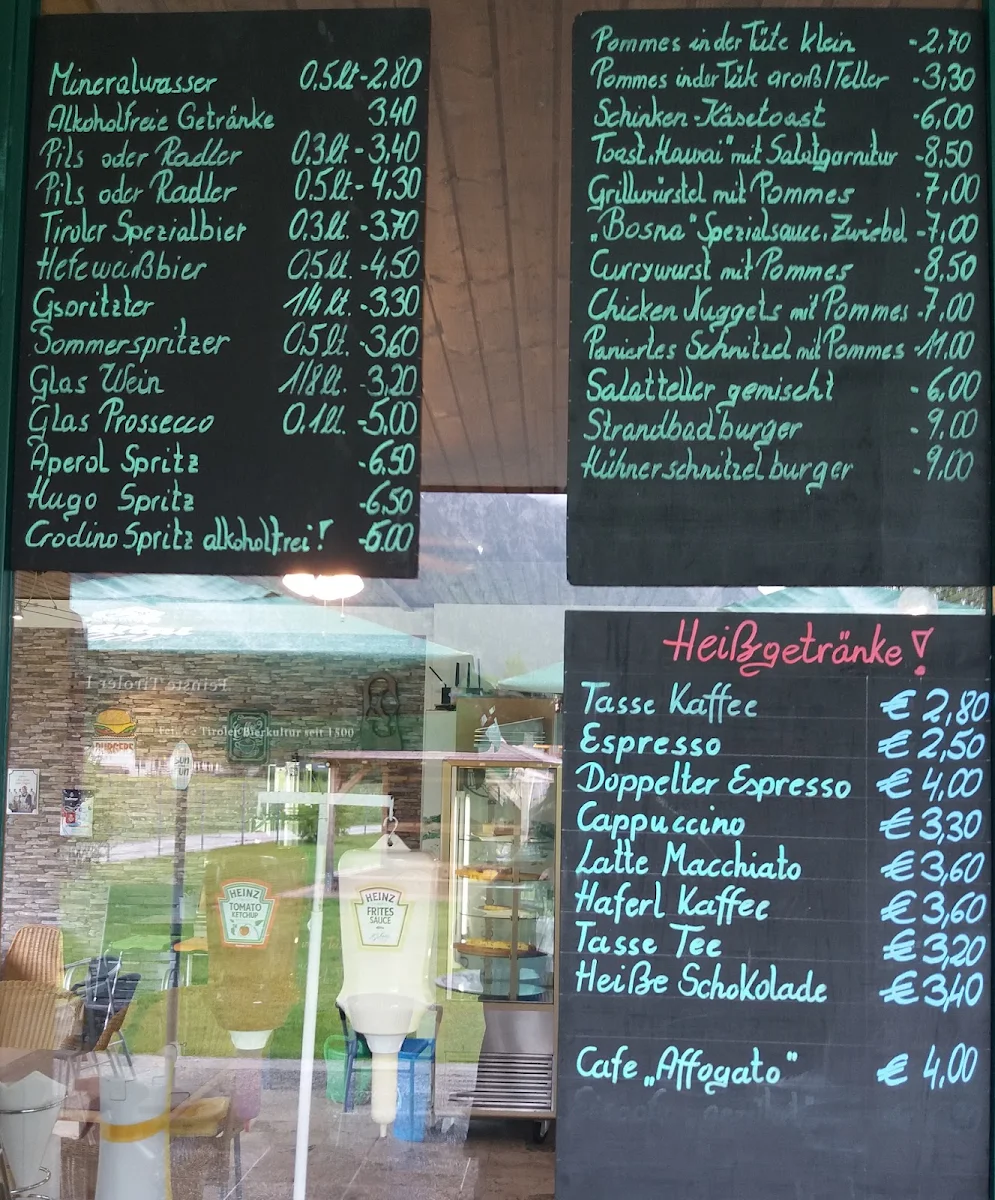 Mineralwasser 0,5lt - 2,80
Alkoholfreie Getränke 3,40
Pils oder Radler 0,3lt - 3,40
Pils oder Radler 0,5lt - 4,30
Tiroler Spezialbier 0,3lt. - 3,70
Hefeweißbier 0,5lt. - 4,50
Gsoritzter 1/4 lt. - 3,30
Sommerspritzer 0,5lt. - 3,60
Glas Wein 1/8lt. - 3,20
Glas Prossecco 0,1lt. - 5,00
Aperol Spritz - 6,50
Hugo Spritz - 6,50
Crodino Spritz alkoholfrei! - 5.00
Pommes in der Tüte klein - 2,70
Pommes in der Tüte groß/Teller - 3,30
Schinken-Käsetoast - 6,00
Toast „Hawai“ mit Salatgarnitur - 8,50
Grillwürstel mit Pommes - 7,00
„Bosna“ Spezialsauce, Zwiebel - 7,00
Currywurst mit Pommes - 8,50
Chicken Nuggets mit Pommes - 7,00
Paniertes Schnitzel mit Pommes - 11,00
Salatteller gemischt - 6,00
Strandbadburger - 9,00
Hühnerschnitzelburger - 9,00
Heißgetränke!
Tasse Kaffee € 2,80
Espresso € 2,50
Doppelter Espresso € 4,00
Cappuccino € 3,30
Latte Macchiato € 3,60
Haferl Kaffee € 3,60
Tasse Tee € 3,20
Heiße Schokolade € 3,40
Cafe „Affogato“ € 4,00
Feinste Tiroler
Tiroler Bierkultur seit 1300
BURGERS
HEINZ
TOMATO
KETCHUP
HEINZ
FRITES
SAUCE